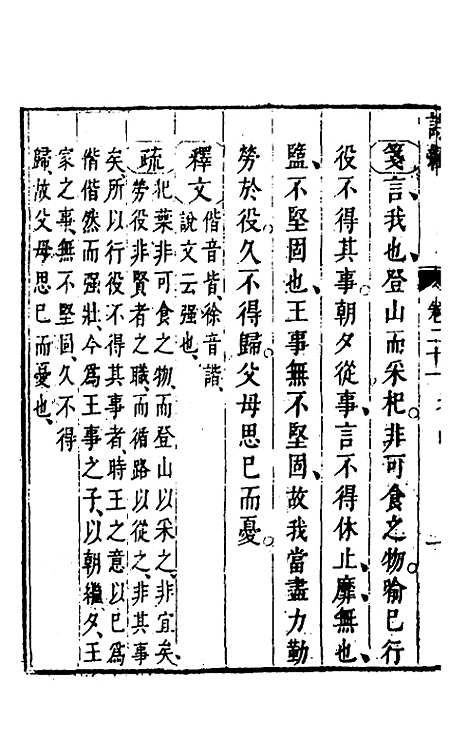 卷二十一
箋言我也登山而采杞非可食之物喻已行
役不得其事朝夕從事言不得休止靡無也
盬不堅固也王事無不堅固故我當盡力勤
勞於役久不得歸父母思已而憂
釋文偕音皆徐音諧
說文云强也
疏杞葉非可食之物而登山以采之非宜矣
勞役非賢者之職而循路以從之非其事
矣所以行役不得其事者時王之意以已爲
偕偕然而强壯今爲王事之子以朝繼夕王
家之事無不堅固久不得
歸故父母思已而憂也